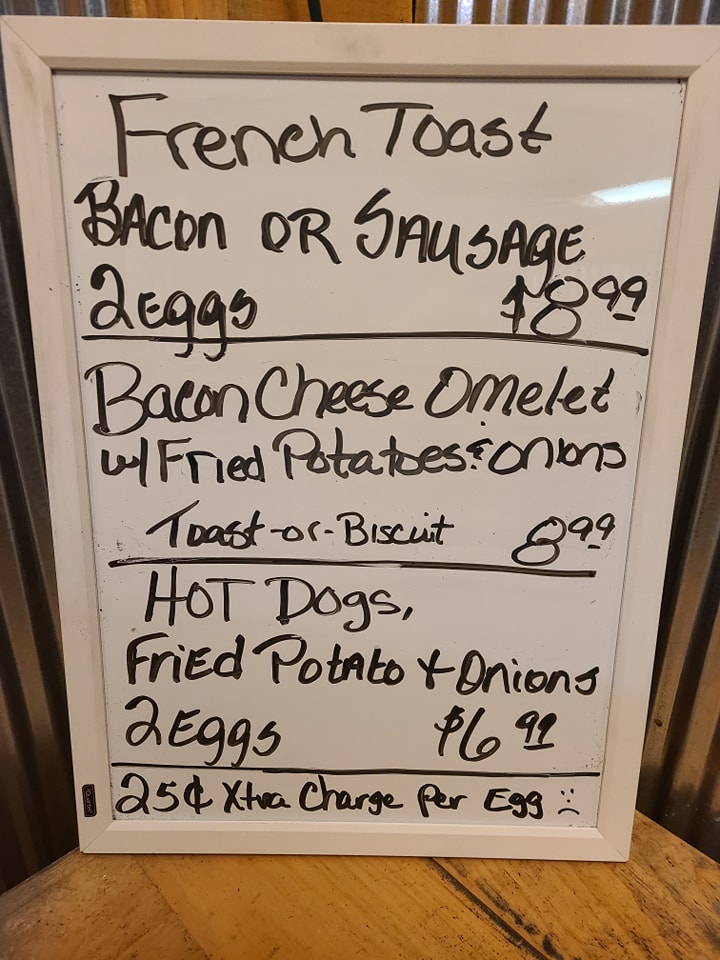 French Toast
BACON OR SAUSAGE
2 Eggs $8.99
Bacon Cheese Omelet
w/ Fried Potatoes & Onions
Toast -or- Biscuit 8.99
HOT Dogs,
FriEd PotAto & Onions
2 Eggs $6.99
25¢ Xtra Charge Per Egg :(